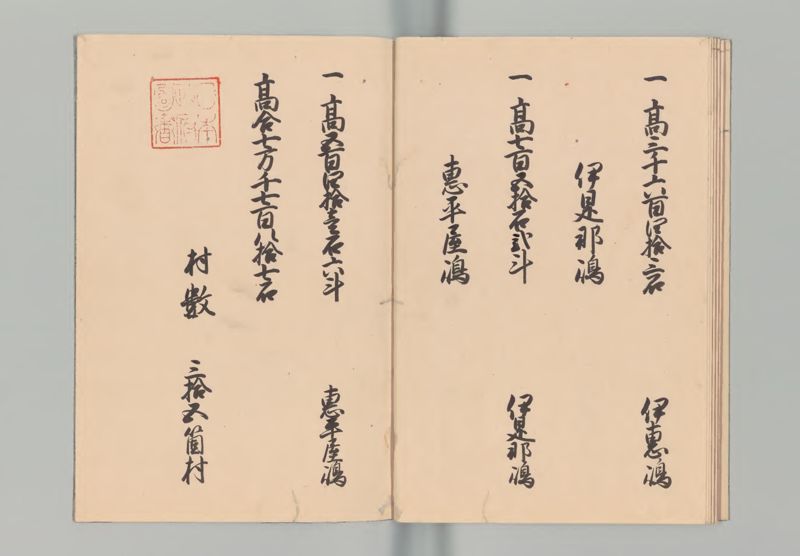 一 高三千六百四拾三石 伊惠嶋
伊是那嶋
一 高七百五拾石弐斗 伊是那嶋
惠平屋嶋
一 高五百四拾壱石六斗 惠平屋嶋
高合七万千七百八拾七石
村數 三拾五箇村